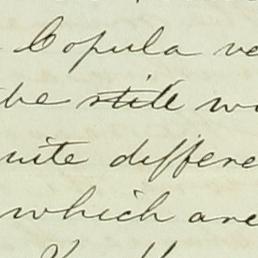 Copula
the still
quite differe
which are